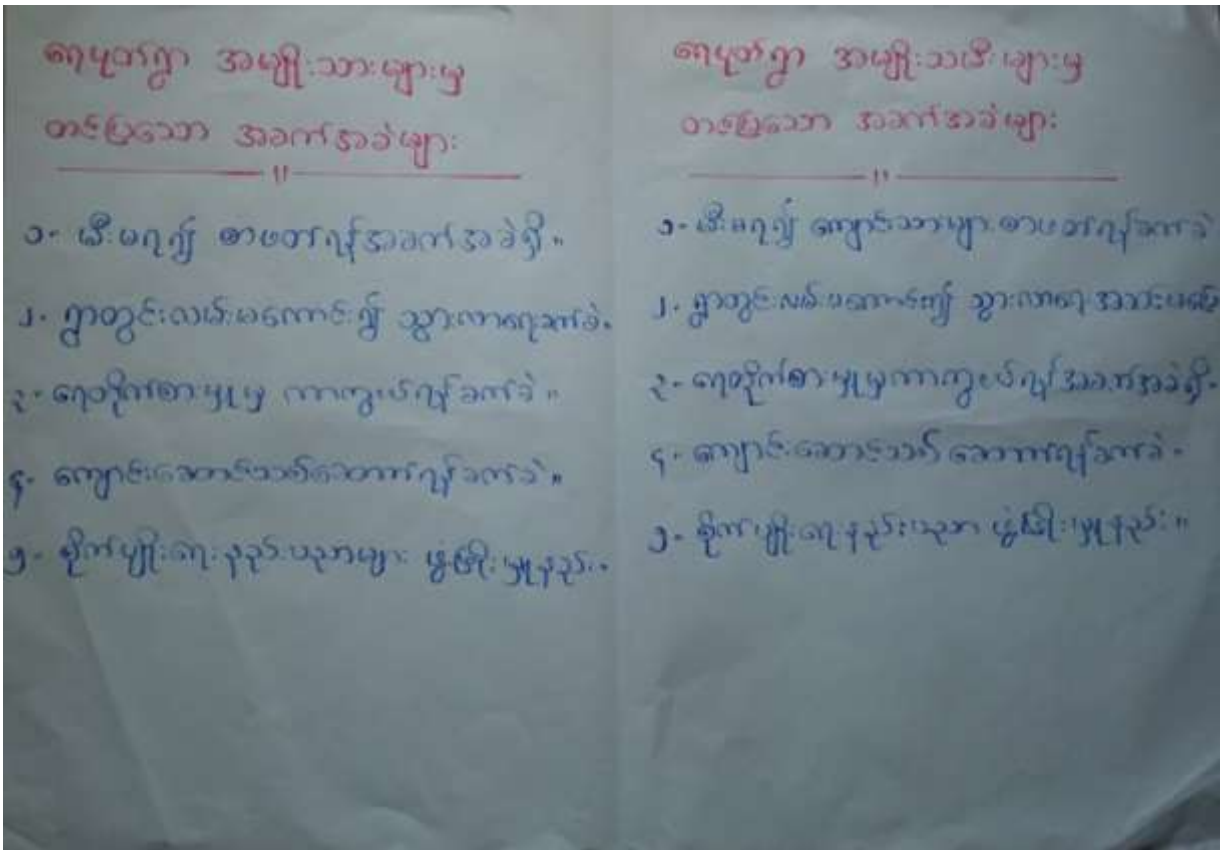 ရေပုတ်ရွာ အမျိုးသားများမှ
တင်ပြသော အခက်အခဲများ
၁- မီးမရ၍ စာဖတ်ရန်အခက်အခဲရှိ။
၂- ရွာတွင်းလမ်းမကောင်း၍ သွားလာရေးခက်ခဲ။
၃- ရေတိုက်စားမှုမှ ကာကွယ်ရန်ခက်ခဲ။
၄- ကျောင်းဆောင်သစ်ဆောက်ရန်ခက်ခဲ။
၅- စိုက်ပျိုးရေးနည်းပညာများ ဖွံ့ဖြိုးမှုနည်း။
ရေပုတ်ရွာ အမျိုးသမီးများမှ
တင်ပြသော အခက်အခဲများ
၁- မီးမရ၍ ကျောင်းသားများ စာဖတ်ရန်ခက်ခဲ
၂- ရွာတွင်းလမ်းမကောင်း၍ သွားလာရေး
၃- ရေတိုက်စားမှုမှကာကွယ်ရန်အခက်အခဲရှိ။
၄- ကျောင်းဆောင်သစ် ဆောက်ရန်ခက်ခဲ။
၅- စိုက်ပျိုးရေးနည်းပညာ ဖွံ့ဖြိုးမှုနည်း။